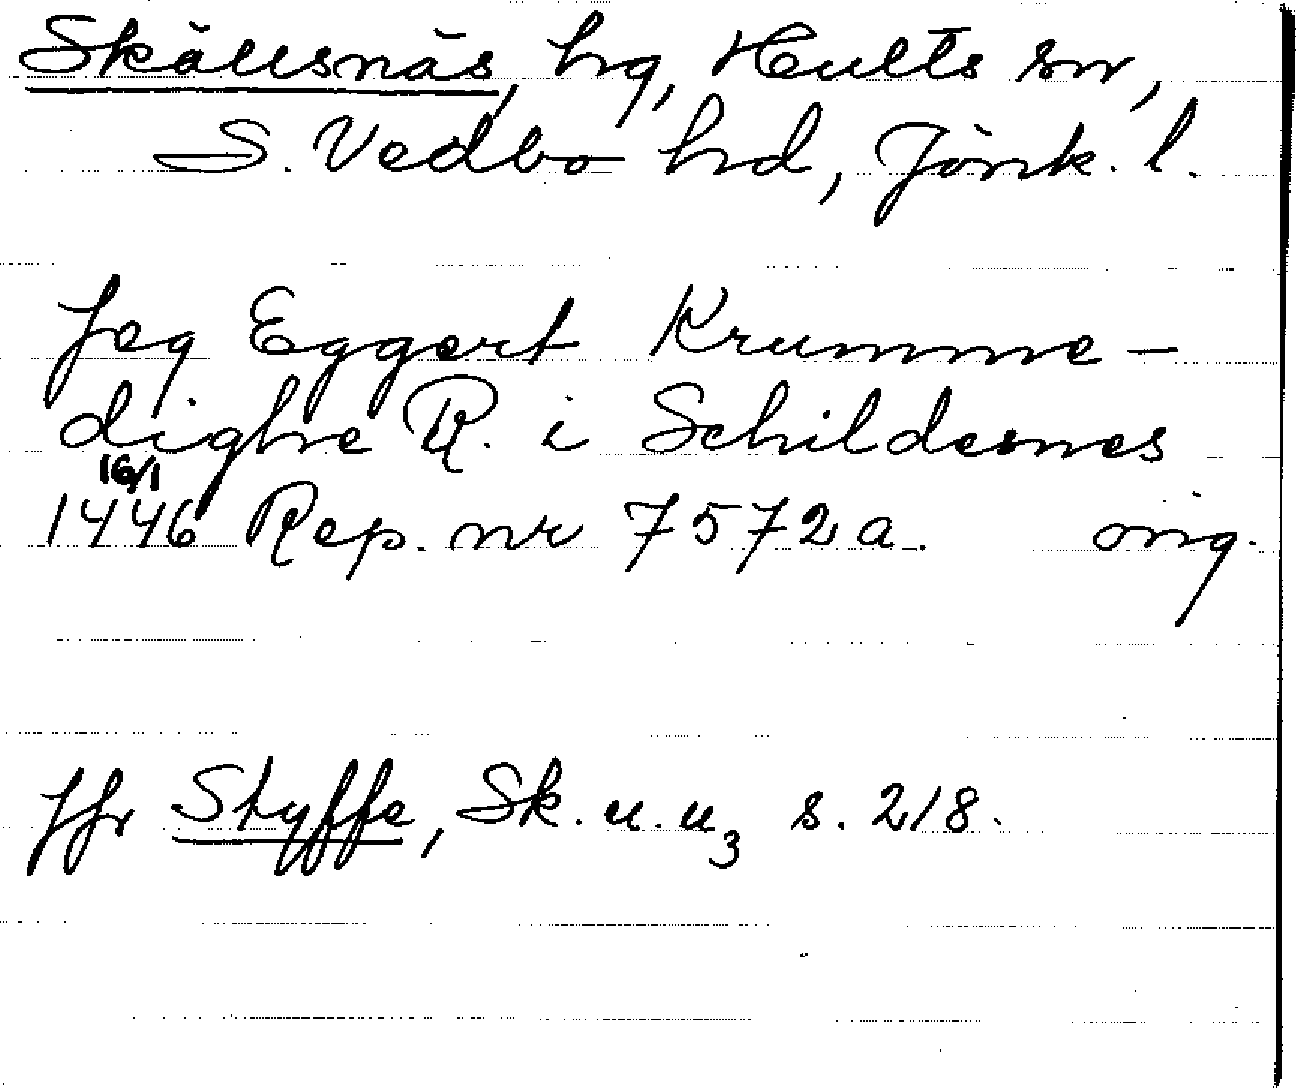 Skällsnäs, hg, Hults sn,
S. Vedbo hd, Jönk. l.
Jeg Eggert Krumme-
dighe R. i Schildesnes
16/1
1446 Rep. nr 7572a. orig.
Jfr Styffe, Sk. u. u3 s. 218.